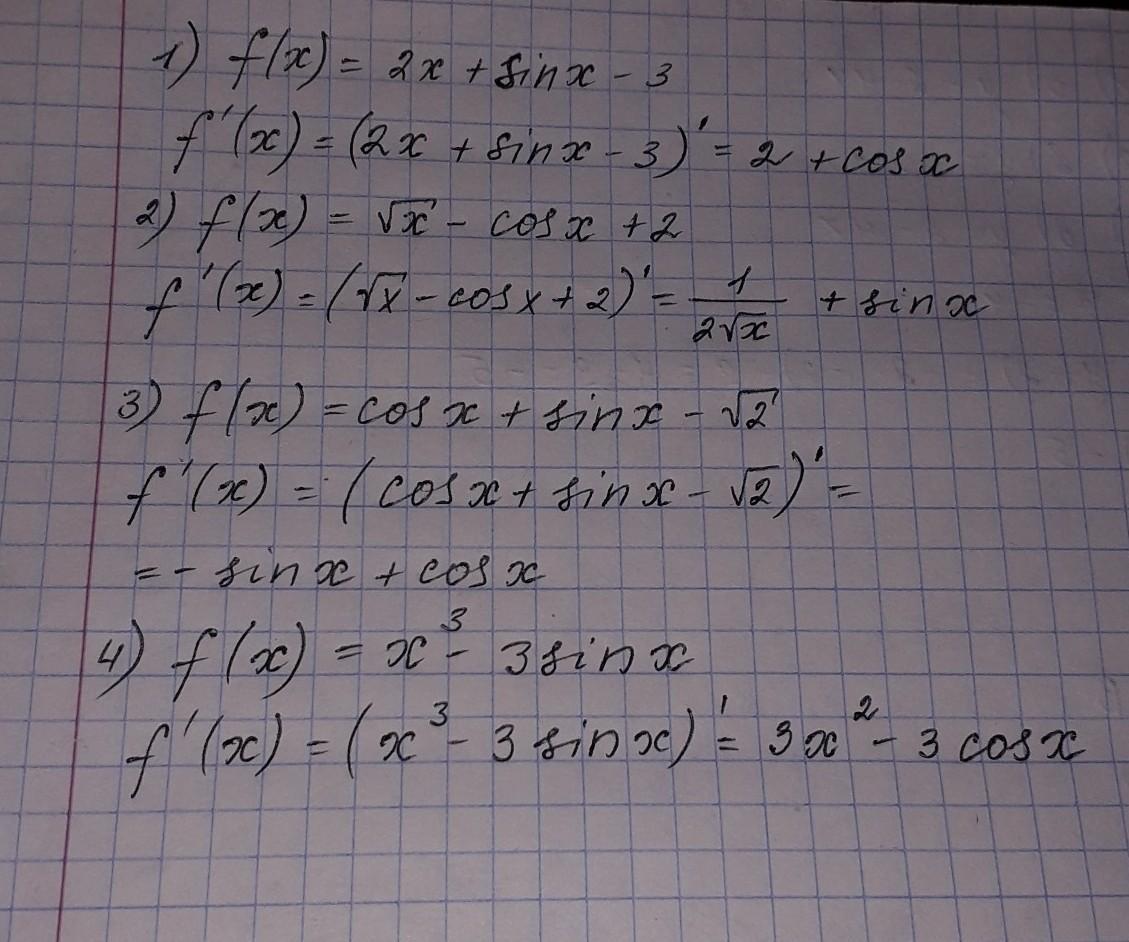 1) f(x) = 2x + sinx - 3
f'(x) = (2x + sinx - 3)' = 2 + cosx
2) f(x) = √x - cosx + 2
f'(x) = (√x - cosx + 2)' = 1/(2√x) + sinx
3) f(x) = cosx + sinx - √2
f'(x) = (cosx + sinx - √2)' =
= - sinx + cosx
4) f(x) = x³ - 3sinx
f'(x) = (x³ - 3sinx)' = 3x² - 3cosx